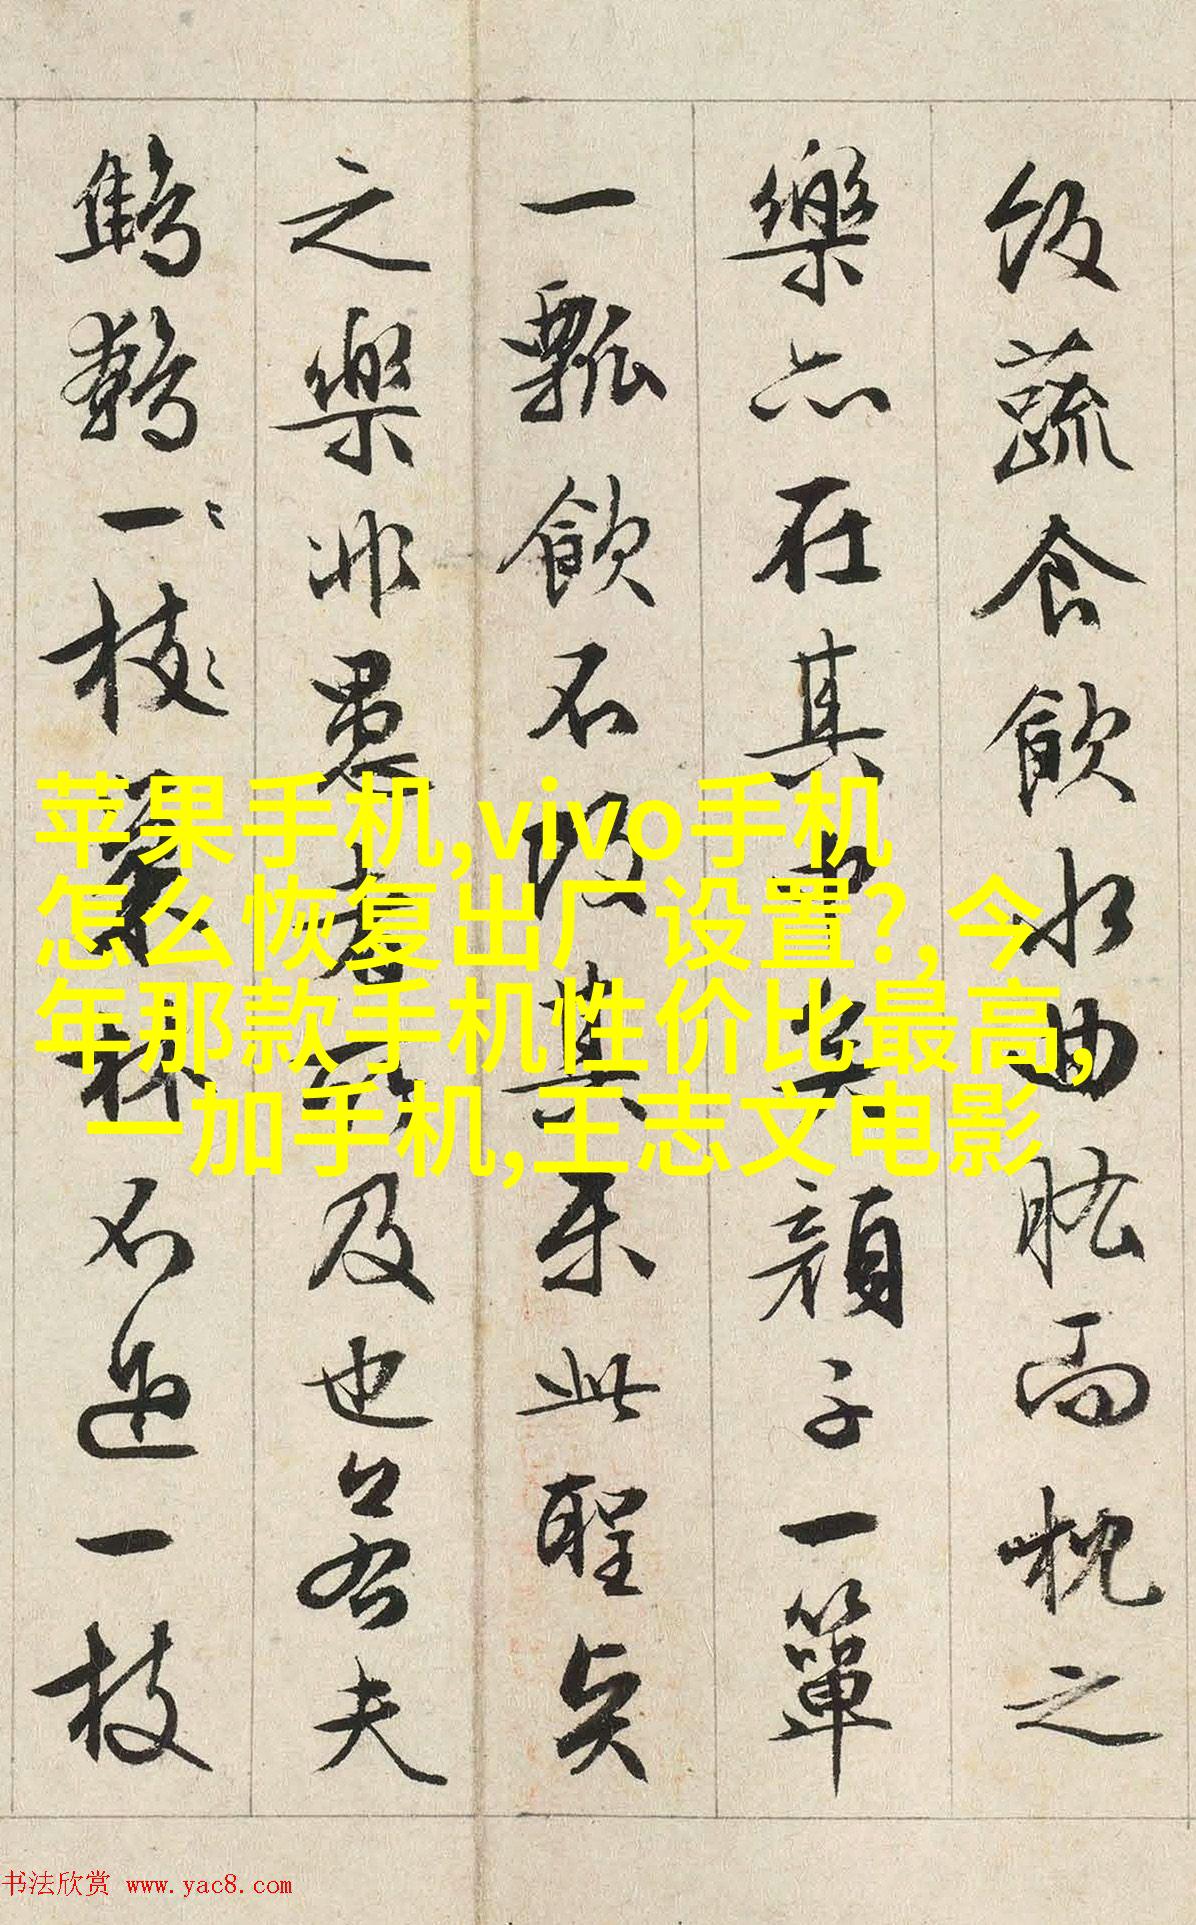 飯蔬食飲水曲肱而枕之
樂亦在其中矣顏子一簞
一瓢飲不改其樂此聖賢
之樂非愚者所及也若夫
鷦鷯一枝巢林不過一枝
苹果手机,vivo手机
怎么恢复出厂设置?,今
年那款手机性价比最高,
一加手机,王志文电影
书法欣赏 www.yac8.com